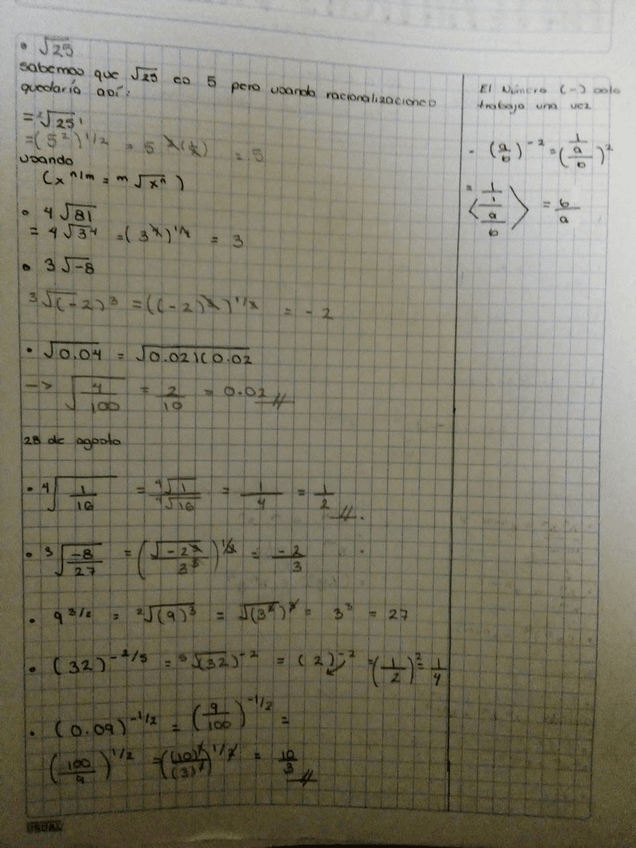 • √25
sabemos que √25 es 5 pero usando racionalizaciones
quedaría así:
= ²√25
= (5²)^1/2 = 5^2(1/2) = 5
usando
(x^n/m = ^m√x^n)
• 4√81
= 4√3⁴ = (3^4)^1/4 = 3
• 3√-8
³√(-2)³ = ((-2)^3)^1/3 = -2
• √0.04 = √0.02)(0.02
-> √4/100 = 2/10 = 0.02 //
28 de agosto
• ⁴√1/16 = ⁴√1/⁴√16 = 1/4 = 1/2 //.
• ³√-8/27 = (√-2^3/3^3)^1/3 = -2/3
• 9^3/2 = ²√(9)³ = √(3²)³ = 3³ = 27
• (32)^-2/5 = ⁵√(32)^-2 = (2)^-2 = (1/2)² = 1/4
• (0.09)^-1/2 = (9/100)^-1/2 =
(100/9)^1/2 = ((10)²/(3)²)^1/2 = 10/3 //
El Número (-) solo
trabaja una vez
• (a/b)^-2 = (1/a/b)²
= <1/1/a/b> = b/a
USUAL